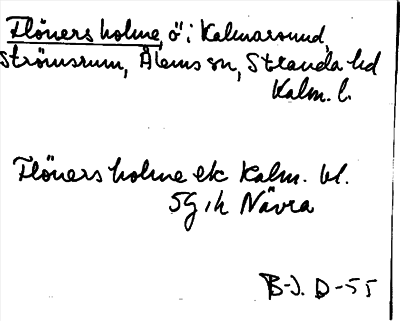 Flöners holme, ö i Kalmarsund,
Strömsrum, Ålems sn, Stranda hd
Kalm. l.
Flöners holme ek Kalm. bl.
5G ih Nävra
B-J. D-55